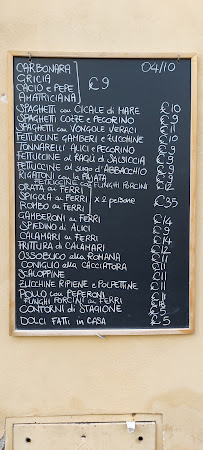 04/10
CARBONARA
GRICIA
CACIO e PEPE
AMATRICIANA
€ 9
SPAGHETTI con CICALE di MARE € 10
SPAGHETTI COZZE e PECORINO € 9
SPAGHETTI con VONGOLE VERACI € 11
FETTUCINE GAMBERI e ZUCCHINE € 10
TONNARELLI ALICI e PECORINO € 9
FETTUCINE al RAGÙ di SALSICCIA € 9
FETTUCINE al sugo d'ABBACCHIO € 9
RIGATONI con la PAJATA € 9
FETTUCCINE con FUNGHI PORCINI € 12
ORATA ai FERRI
SPIGOLA ai FERRI
ROMBO ai FERRI
x 2 persone € 35
GAMBERONI ai FERRI € 14
SPIEDINO di ALICI € 9
CALAMARI ai FERRI € 14
FRITTURA di CALAMARI € 12
OSSOBUCO alla ROMANA € 11
CONIGLIO alla CACCIATORA € 11
SCALOPPINE € 9
ZUCCHINE RIPIENE e POLPETTINE € 11
POLLO con PEPERONI € 11
FUNGHI PORCINI ai FERRI
CONTORNI di STAGIONE € 5
DOLCI FATTI in CASA € 5